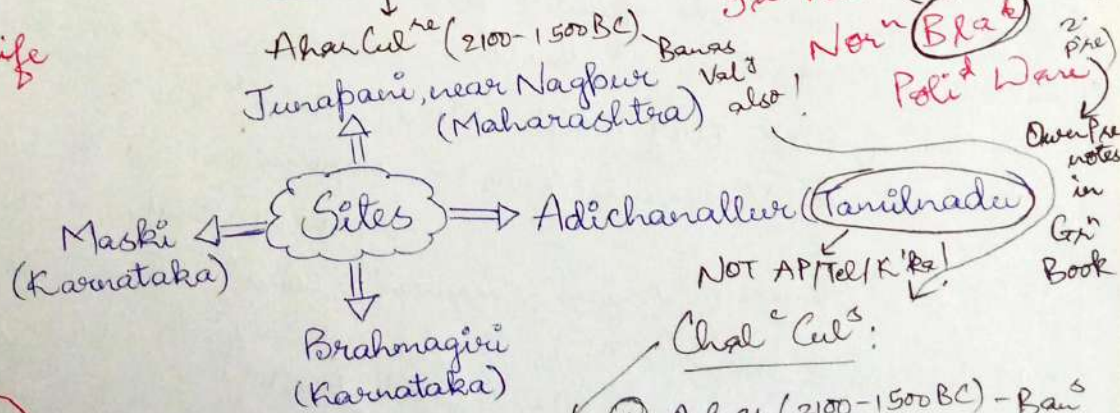 ife
Ahar Cul^re (2100-1500 BC)
Banas
Val^y
also!
Nor^n Bla^k
Poli^d Ware
Junapani, near Nagpur
(Maharashtra)
notes
in
Gr^n
Book
Sites
Maski
(Karnataka)
Adichanallur (Tamilnadu)
NOT AP/Tel/K'ka!
Brahmagiri
(Karnataka)
Chal^c Cul^s:
(2100-1500 BC) - Ban^s